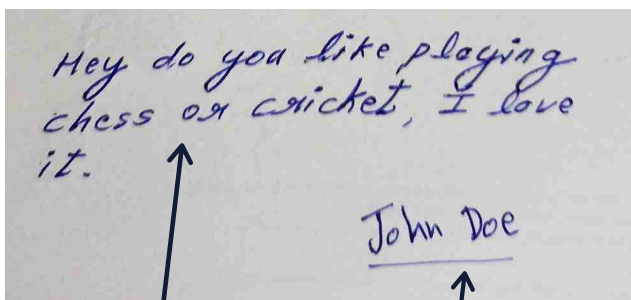 Hey do you like playing
chess or cricket, I love
it.
John Doe